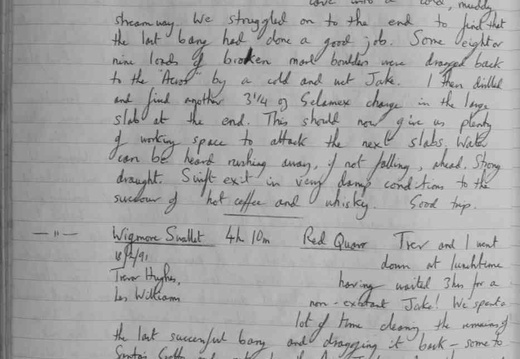 love into a cold, muddy
streamway. We struggled on to the end to find that
the last bang had done a good job. Some eight or
nine loads of broken boulders were dragged back
to the "Acros" by a cold and wet Jake. I then drilled
and fired another 3 1/4 oz Gelamex charge in the large
slab at the end. This should now give us plenty
of working space to attack the next slabs. Water
can be heard rushing away, if not falling, ahead. Strong
draught. Swift exit in very damp conditions to the
succour of hot coffee and whisky. Good trip.
— " — Wigmore Swallet 4h 10m Red Quarr Trev and I went
down at lunchtime
Trevor Hughes, having waited 3hrs for a
Les Williams non-existant Jake! We spent a
lot of time clearing the remains of
the last successful bang and dragging it back - some to